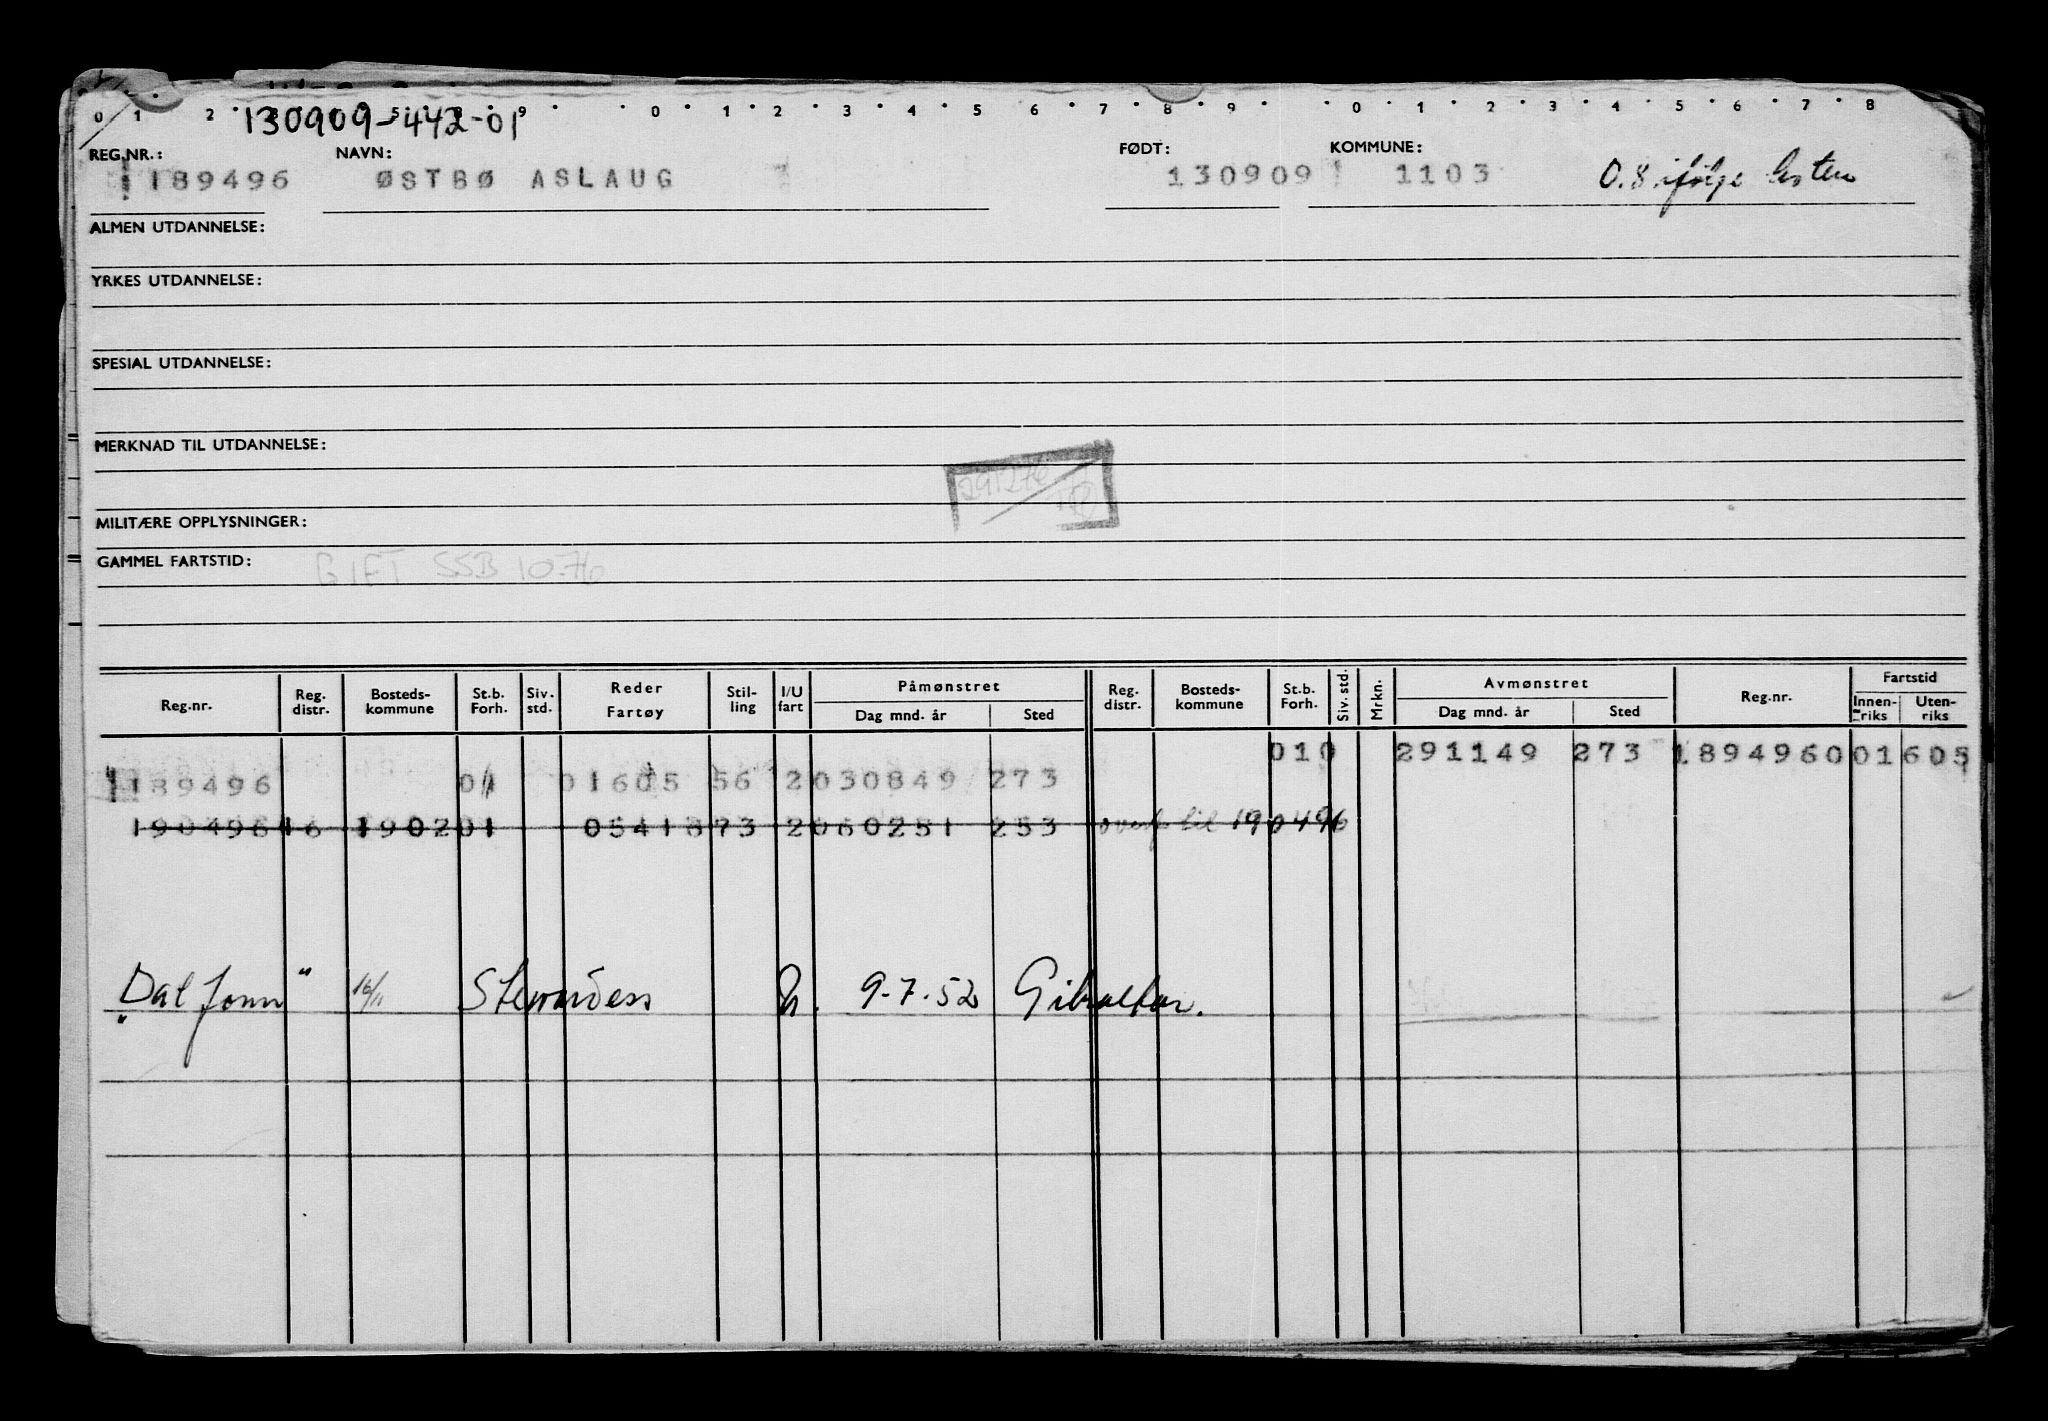 0 1 2 9 0 1 2 3 4 5 6 7 8 9 0 1 2 3 4 5 6 7 8
130909-442-01
REG.NR.: NAVN: FØDT: KOMMUNE:
189496 ØSTBØ ASLAUG 130909 1103 O.S. ifølge listen
ALMEN UTDANNELSE:
YRKES UTDANNELSE:
SPESIAL UTDANNELSE:
MERKNAD TIL UTDANNELSE:
291276
MILITÆRE OPPLYSNINGER:
GAMMEL FARTSTID: GIFT SSB 10.76
Reg.nr. Reg. distr. Bosteds-kommune St.b. Forh. Siv. std. Reder Fartøy Stil-ling I/U fart Påmønstret Dag mnd. år Sted Reg. distr. Bosteds-kommune St.b. Forh. Siv. std. Mrkn. Avmønstret Dag mnd. år Sted Reg.nr. Fartstid Innen-riks Uten-riks
010 291149 273 1894960 01605
189496 01 01605 56 2 030849 273
190496 16 1902 01 05418 73 2 060251 253 overf. til 190496
"Dalfonn" 16/11 Stewardess U. 9-7-52 Gibraltar.